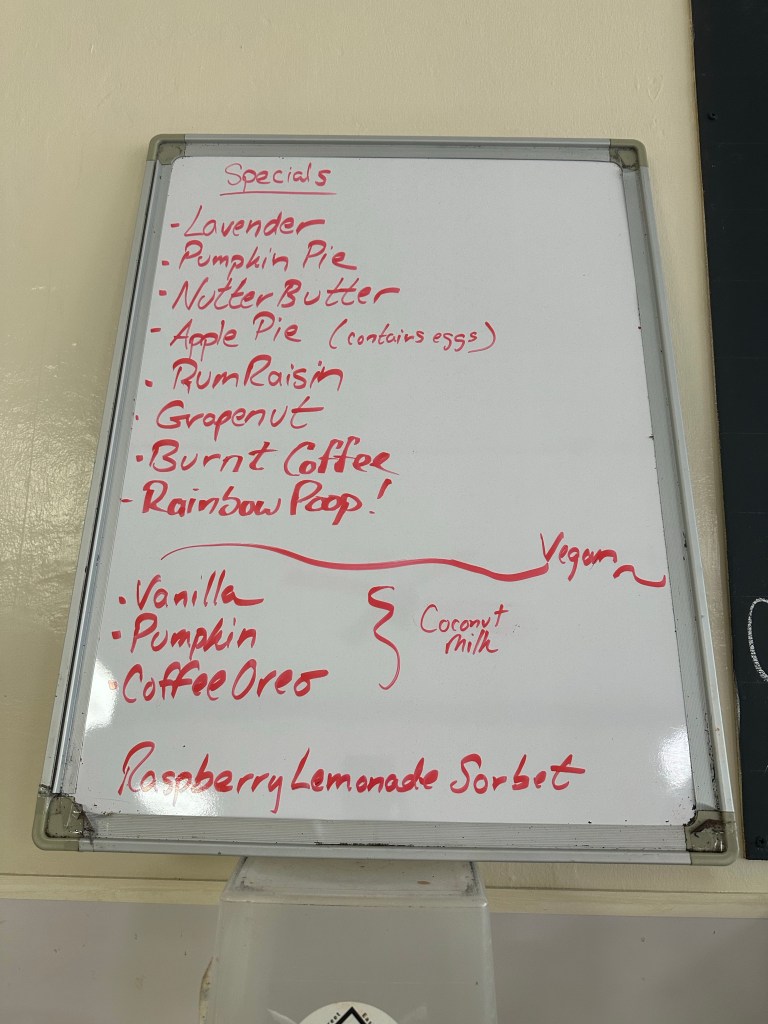 Specials
- Lavender
· Pumpkin Pie
· Nutter Butter
- Apple Pie (contains eggs)
· Rum Raisin
· Grapenut
· Burnt Coffee
- Rainbow Poop!
Vegan
· Vanilla
· Pumpkin
· Coffee Oreo
Coconut
Milk
Raspberry Lemonade Sorbet